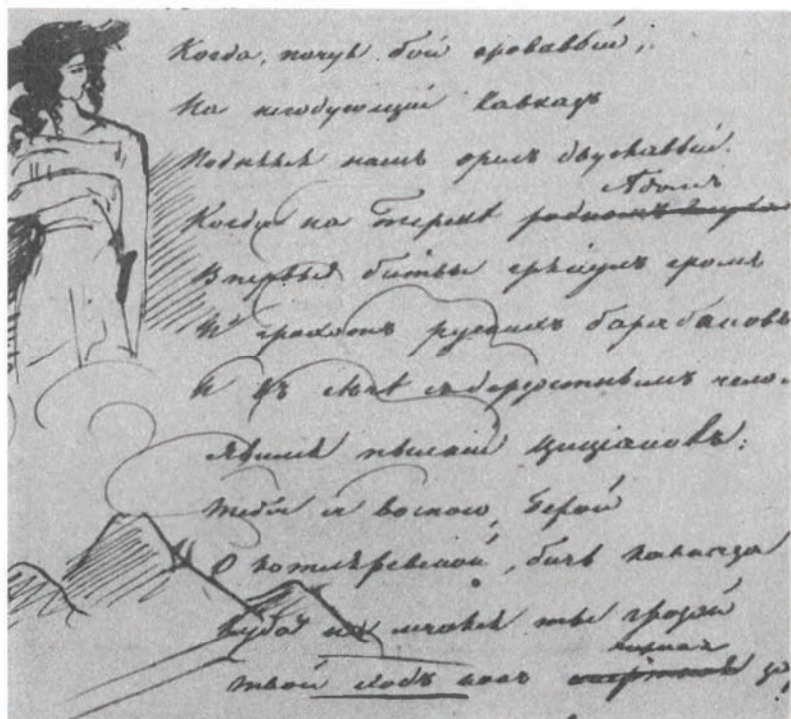 Когда, почуя бой кровавый,
На негодующій Кавказъ
Поднялся нашъ орелъ двуглавый.
сѣдомъ
Когда на Терекѣ
Впервые битвы грянулъ громъ
И грохотъ русскихъ барабановъ
И въ сечѣ съ дерзостнымъ чело.
Явился пылкій Циціановъ:
Тебя я воспою, Герой
О Котляревской, бичь Кавказа
Куда ни мчался ты грозой
черная
Твой ходъ какъ за